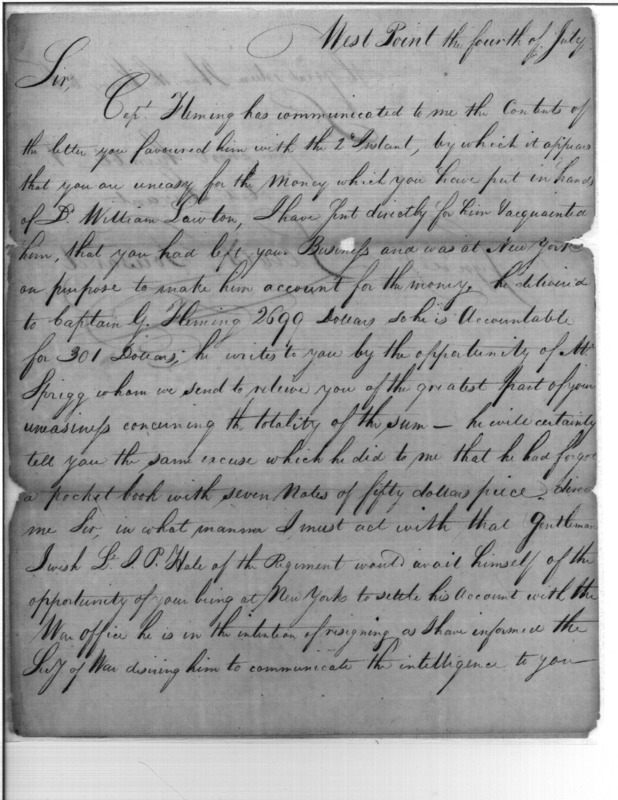 West Point the fourth of July
Sir,
Capt. Fleming has communicated to me the Contents of
the letter you favoured him with the 2d Instant, by which it appears
that you are uneasy for the Money which you have put in hands
of D. William Lawton, I have Sent directly for him & acquainted
him, that you had left your Business and was at New York
on purpose to make him account for the money. he delivered
to Captain G. Fleming 2699 Dollars so he is Accountable
for 301 Dollars; he writes to you by the opportunity of Mr
Sprigg whom we send to relieve you of the greatest part of your
uneasiness concerning the totality of the sum — he will certainly
tell you the same excuse which he did to me that he had forgot
a pocket book with seven Notes of fifty dollars piece. direct
me Sir, in what manner I must act with that Gentleman
I wish Lt. I. P. Hale of the Regiment would avail himself of the
opportunity of your being at New York to settle his Account with the
War office he is in the intention of resigning as I have informed the
Secy of War desiring him to communicate the intelligence to you —